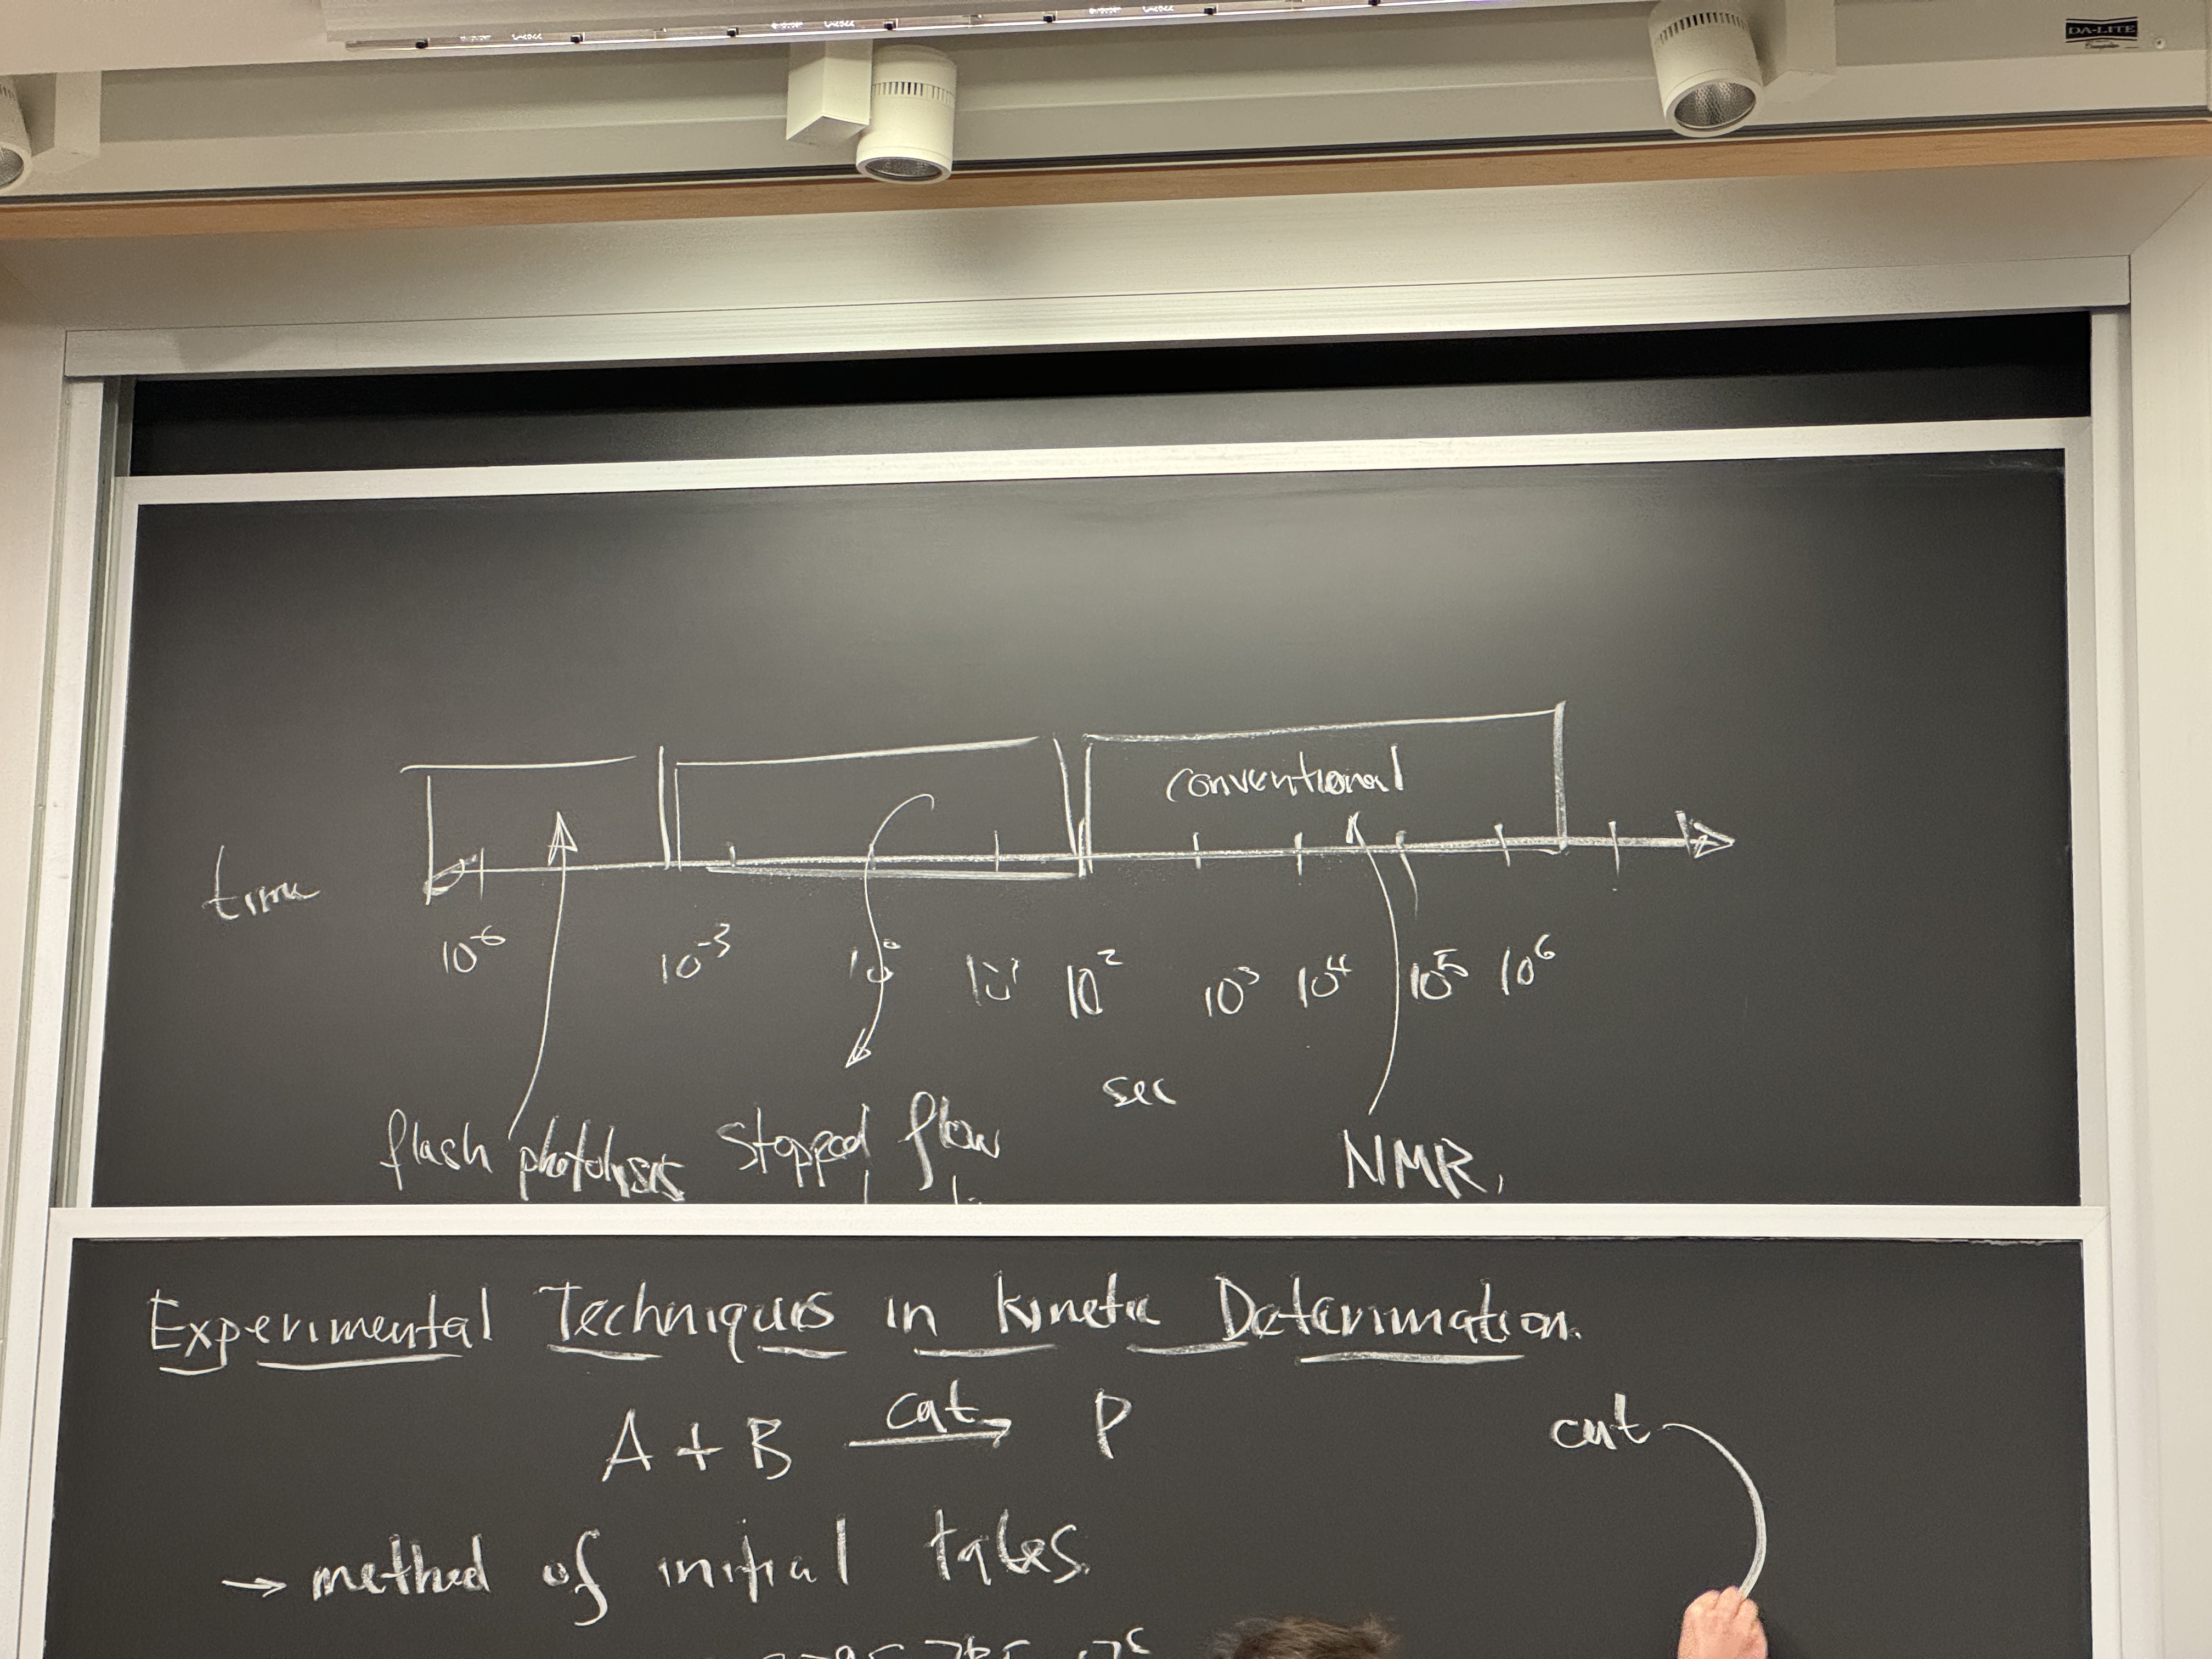 DA-LITE
conventional
time
10⁻⁶ 10⁻³ 10⁰ 10¹ 10² 10³ 10⁴ 10⁵ 10⁶
sec
flash photolysis stopped flow NMR,
Experimental Techniques in Kinetic Determination.
A + B cat → P
cat
→ method of initial rates.